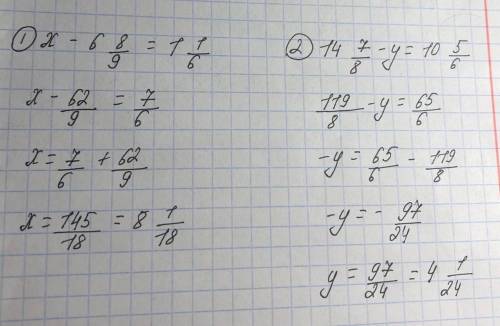 ① x - 6 8/9 = 1 1/6
x - 62/9 = 7/6
x = 7/6 + 62/9
x = 145/18 = 8 1/18
② 14 7/8 - y = 10 5/6
119/8 - y = 65/6
-y = 65/6 - 119/8
-y = - 97/24
y = 97/24 = 4 1/24